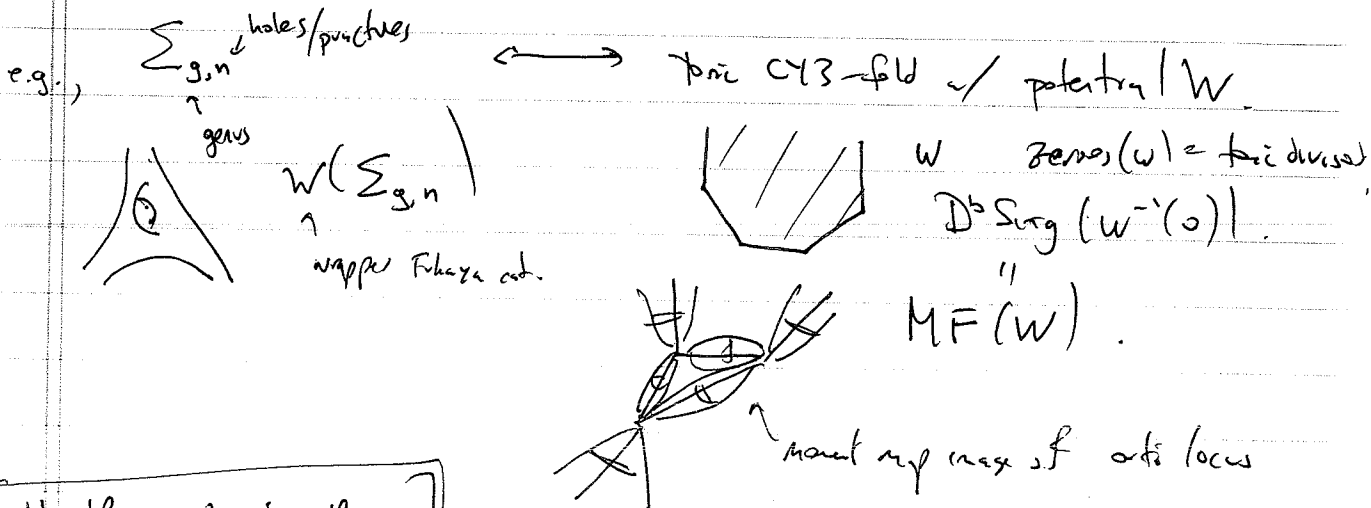 holes/punctures
e.g., Σ_{g,n} ⟷ toric CY3-fold w/ potential W.
genus
W(Σ_{g,n})
wrapped Fukaya cat.
W zeroes(W) = toric divisor
D^b Sing (W^{-1}(0)).
"
MF(W).
moment map image of crit locus